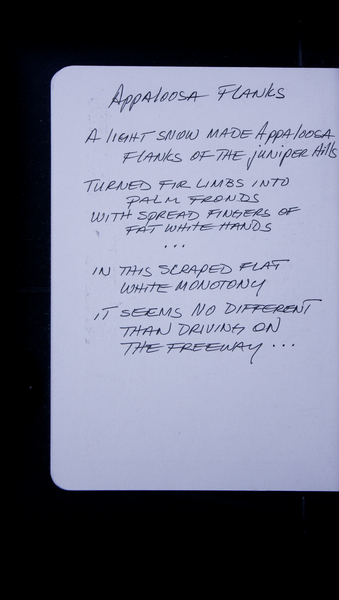 Appaloosa Flanks
A light snow made Appaloosa
flanks of the juniper hills
Turned fir limbs into
palm fronds
with spread fingers of
fat white hands
...
In this scraped flat
white monotony
it seems no different
than driving on
the freeway ...